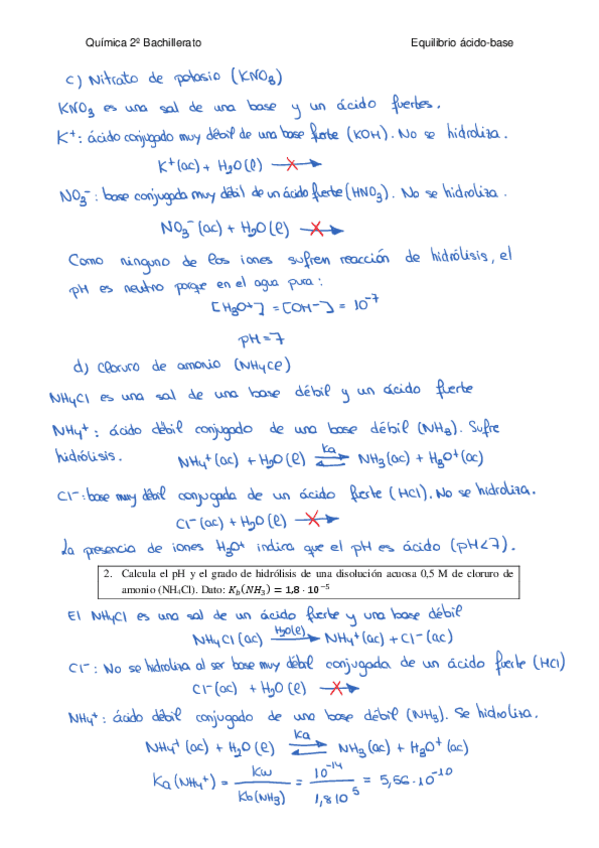 Química 2º Bachillerato Equilibrio ácido-base
c) Nitrato de potasio (KNO₃)
KNO₃ es una sal de una base y un ácido fuertes.
K⁺: ácido conjugado muy débil de una base fuerte (KOH). No se hidroliza.
K⁺(ac) + H₂O(l) ✗→
NO₃⁻: base conjugada muy débil de un ácido fuerte (HNO₃). No se hidroliza.
NO₃⁻(ac) + H₂O(l) ✗→
Como ninguno de los iones sufren reacción de hidrólisis, el
pH es neutro porque en el agua pura:
[H₃O⁺] = [OH⁻] = 10⁻⁷
pH = 7
d) Cloruro de amonio (NH₄Cl)
NH₄Cl es una sal de una base débil y un ácido fuerte
NH₄⁺: ácido débil conjugado de una base débil (NH₃). Sufre
hidrólisis. NH₄⁺(ac) + H₂O(l) ⇌ Ka NH₃(ac) + H₃O⁺(ac)
Cl⁻: base muy débil conjugada de un ácido fuerte (HCl). No se hidroliza.
Cl⁻(ac) + H₂O(l) ✗→
La presencia de iones H₃O⁺ indica que el pH es ácido (pH<7).
2. Calcula el pH y el grado de hidrólisis de una disolución acuosa 0,5 M de cloruro de
amonio (NH₄Cl). Dato: K_b(NH₃) = 1,8 · 10⁻⁵
El NH₄Cl es una sal de un ácido fuerte y una base débil
NH₄Cl(ac) H₂O(l)→ NH₄⁺(ac) + Cl⁻(ac)
Cl⁻: No se hidroliza al ser base muy débil conjugada de un ácido fuerte (HCl)
Cl⁻(ac) + H₂O(l) ✗→
NH₄⁺: ácido débil conjugado de una base débil (NH₃). Se hidroliza.
NH₄⁺(ac) + H₂O(l) ⇌ Ka NH₃(ac) + H₃O⁺(ac)
Ka(NH₄⁺) = Kw / Kb(NH₃) = 10⁻¹⁴ / 1,8 10⁵ = 5,56·10⁻¹⁰